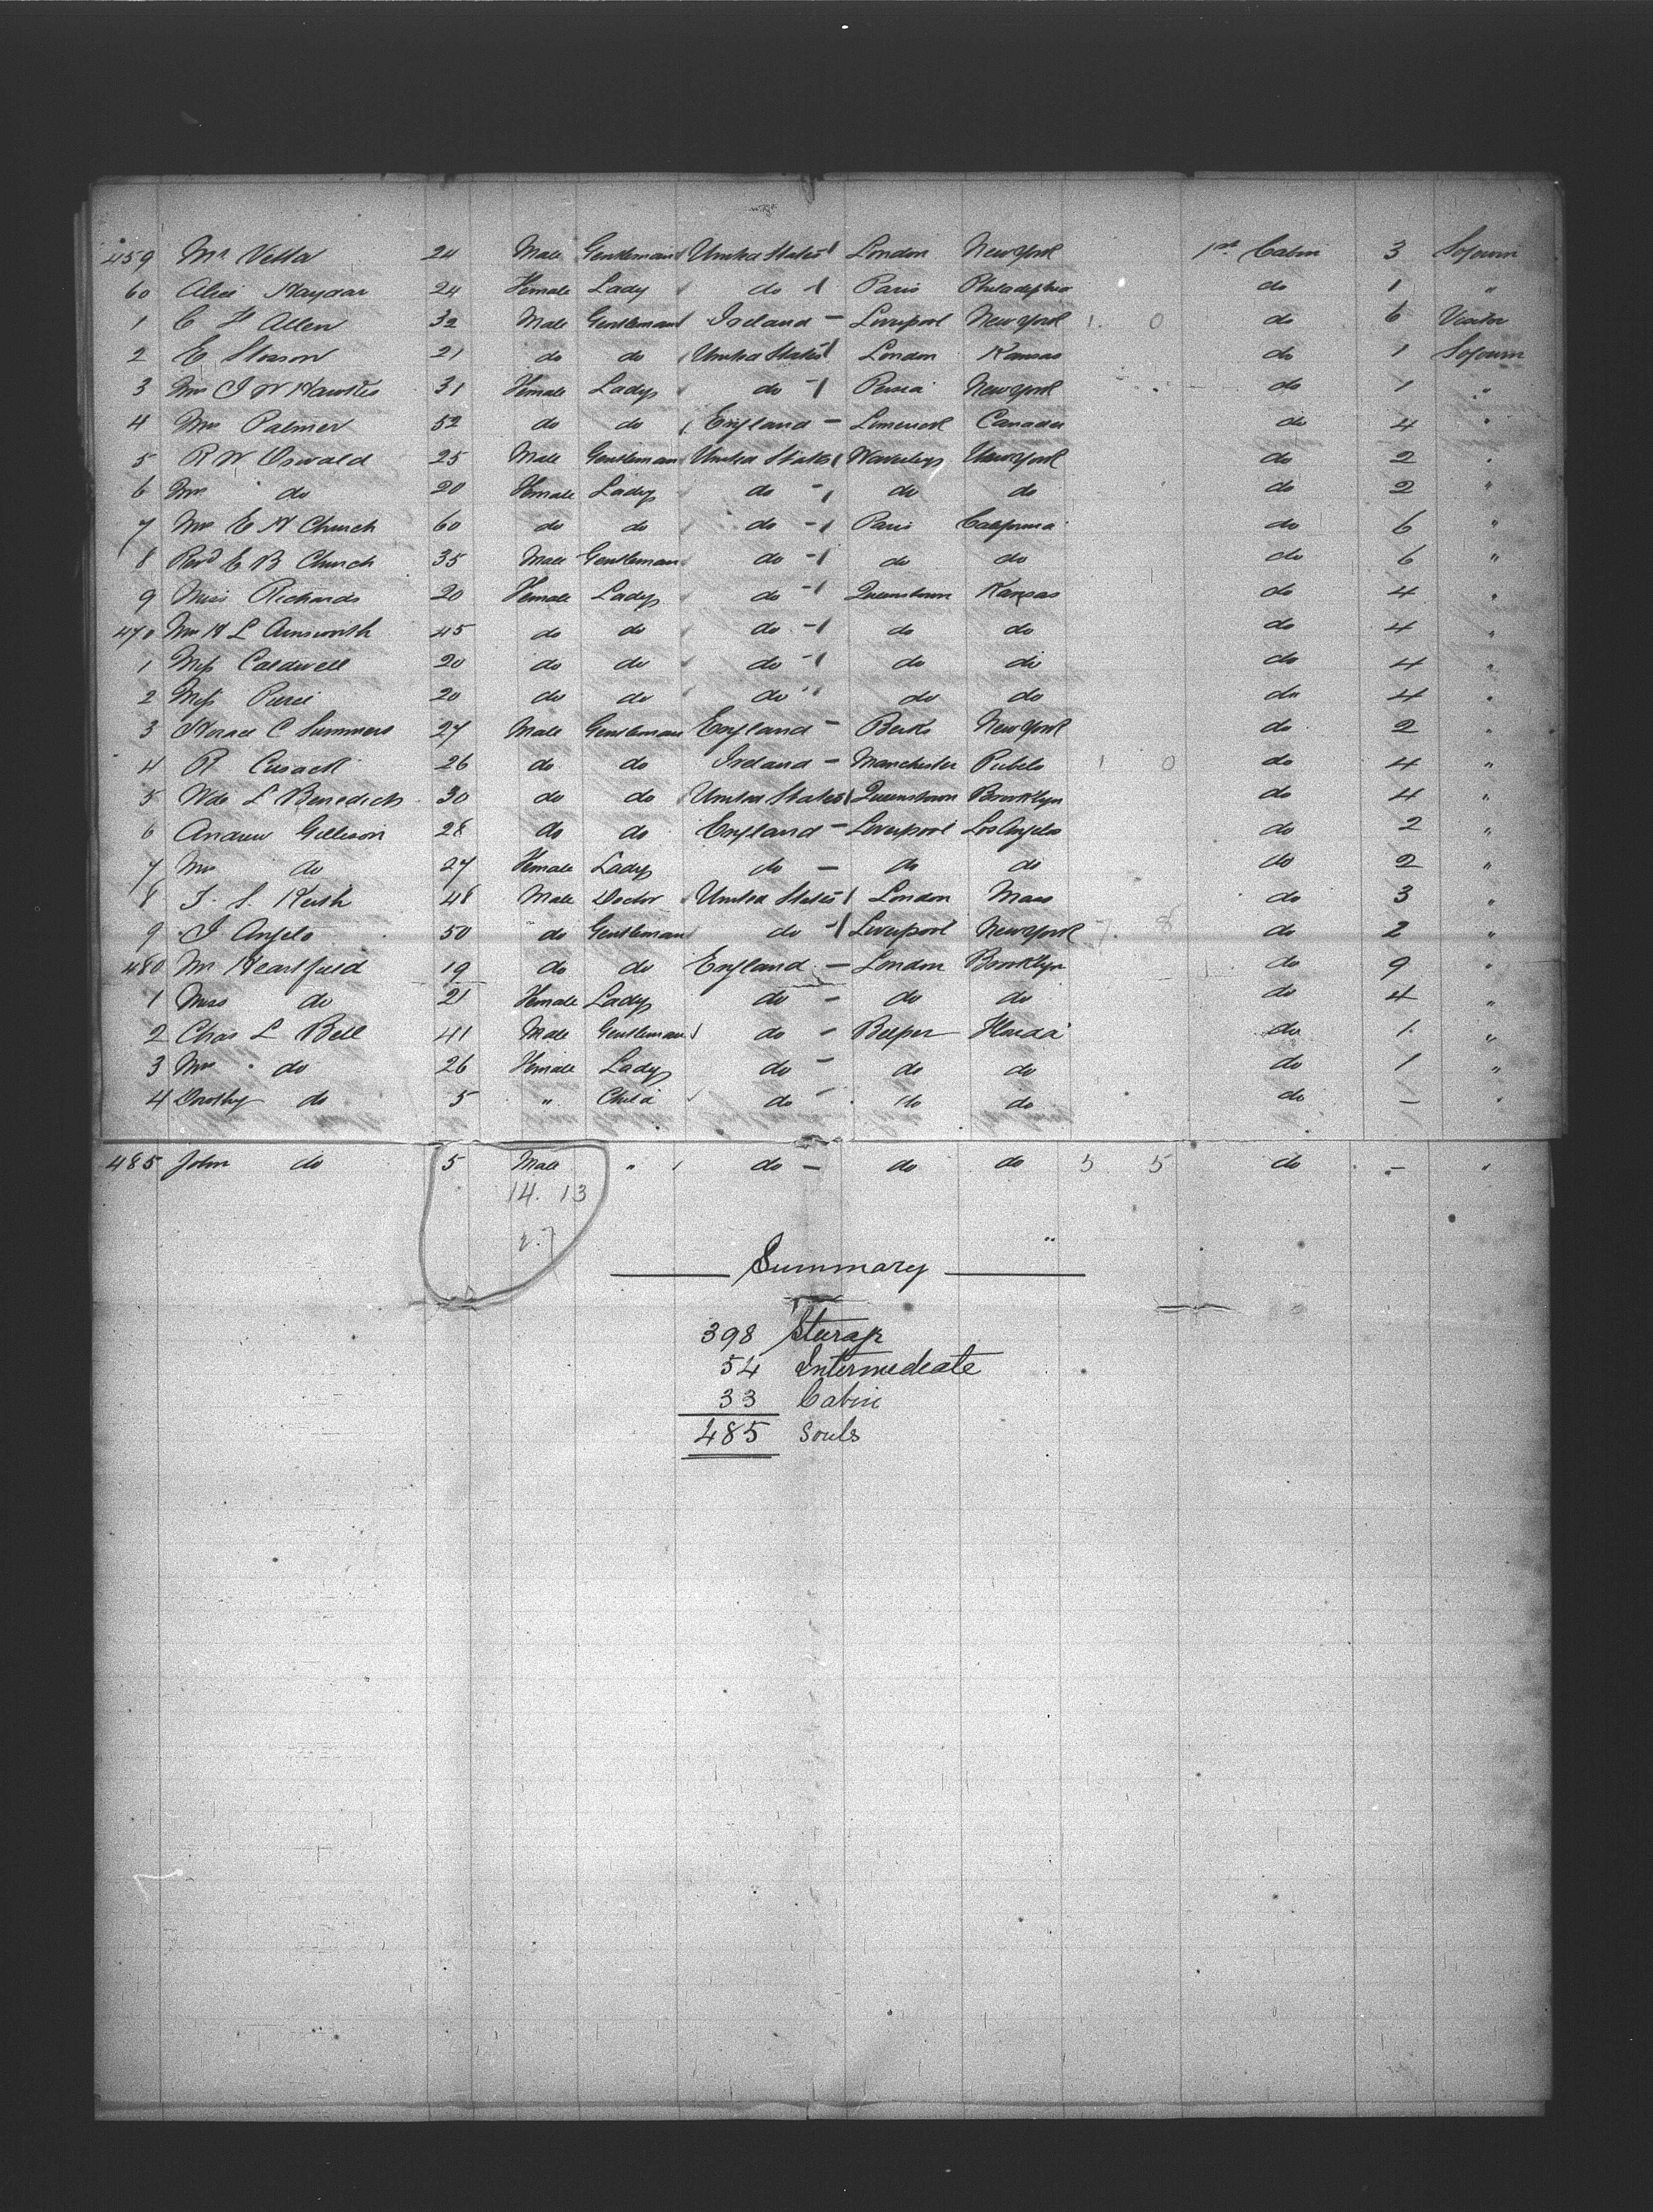 459 Mr Vetta 24 Male Gentleman United States London New York 1st Cabin 3 Sojourn
60 Alice Haydar 24 Female Lady do Paris Philadelphia do 1 "
1 C H Allen 32 Male Gentleman Ireland - Liverpool New York 1. 0 do 6 Visitor
2 E 21 do do United States London Kansas do 1 Sojourn
3 Mrs J W Hawkes 31 Female Lady do - Persia New York do 1 "
4 Mrs Palmer 52 do do England - Canada do 4 "
5 R W Oswald 25 Male Gentleman United States Waverley New York do 2 "
6 Mrs do 20 Female Lady do - do do do 2 "
7 Mrs E H Church 60 do do do - Paris California do 6 "
8 Revd E B Church 35 Male Gentleman do - do do do 6 "
9 Miss Richards 20 Female Lady do - Queenstown Kansas do 4 "
470 Mrs H L Ainsworth 45 do do do - do do do 4 "
1 Miss Caldwell 20 do do do - do do do 4 "
2 Miss 20 do do do do do do 4 "
3 Horace C Summers 27 Male Gentleman England - Berks New York do 2 "
4 R Cusack 26 do do Ireland - Manchester Pueblo 1 0 do 4 "
5 L Benedich 30 do do United States Queenstown Brooklyn do 4 "
6 Andrew Gillison 28 do do England - Liverpool Los Angelos do 2 "
7 Mrs do 27 Female Lady do - do do do 2 "
8 48 Male Doctor United States London Mass do 3 "
9 J Angelo 50 do Gentleman do - Liverpool New York 7. 8 do 2 "
480 Mr Heartfield 19 do do England - London Brooklyn do 9 "
1 Miss do 21 Female Lady do - do do do 4 "
2 Chas L Bell 41 Male Gentleman do - Florida do 1 "
3 Mrs do 26 Female Lady do - do do do 1 "
4 Dorothy do 5 " Child do - do do do - "
485 John do 5 Male " do - do do 5 5 do - "
14. 13
2.7
Summary
398 Steerage
54 Intermediate
33 Cabin
485 Souls